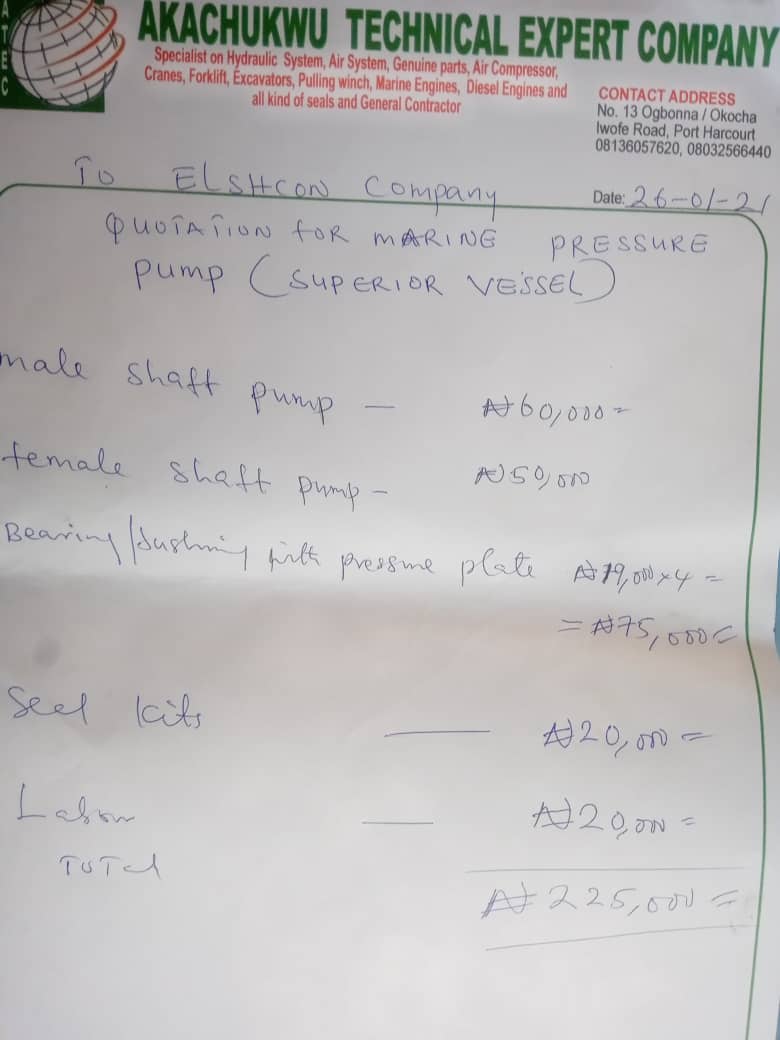 ATEC
AKACHUKWU TECHNICAL EXPERT COMPANY
Specialist on Hydraulic System, Air System, Genuine parts, Air Compressor,
Cranes, Forklift, Excavators, Pulling winch, Marine Engines, Diesel Engines and
all kind of seals and General Contractor
CONTACT ADDRESS
No. 13 Ogbonna / Okocha
Iwofe Road, Port Harcourt
08136057620, 08032566440
Date: 26-01-21
To ELSHCON Company
QUOTATION FOR MARINE PRESSURE
Pump (SUPERIOR VESSEL)
male shaft pump — ₦60,000=
female shaft pump - ₦50,000
Bearing/bushing with pressure plate ₦19,000x4 =
= ₦75,000=
Seel kits — ₦20,000 =
Labour — ₦20,000 =
TOTal ₦225,000 =